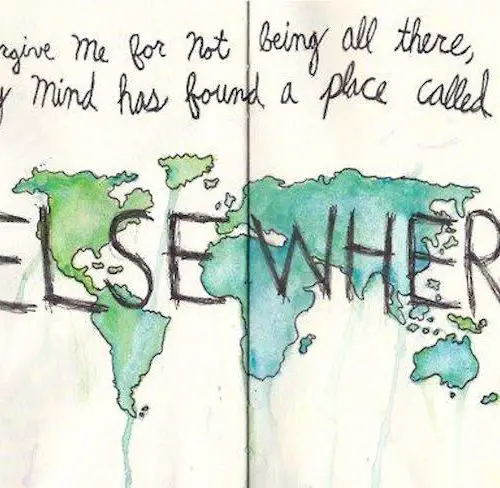 rgive me for not being all there,
y mind has found a place called
ELSEWHER